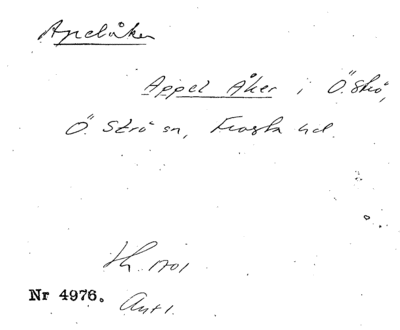 Apelåker
Appel Åker i Ö. Strö,
Ö. Strö sn, Frosta hd.
1701
Nr 4976.